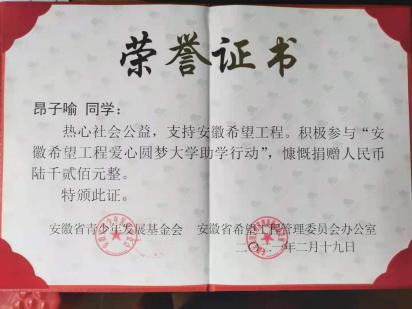 荣誉证书
昂子喻 同学：
热心社会公益，支持安徽希望工程。积极参与“安
徽希望工程爱心圆梦大学助学行动”，慷慨捐赠人民币
陆千贰佰元整。
特颁此证。
安徽省青少年发展基金会 安徽省希望工程管理委员会办公室
二〇二一年二月十九日